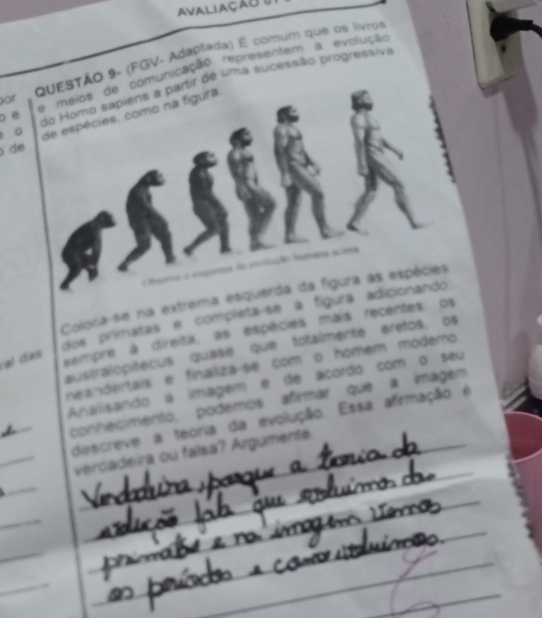 AVALIAÇÃO
QUESTÃO 9- (FGV- Adaptada) É comum que os livros
e meios de comunicação representem a evolução
do Homo sapiens a partir de uma sucessão progressiva
de espécies, como na figura.
Observe o esquema da evolução humana acima.
Coloca-se na extrema esquerda da figura as espécies
dos primatas e completa-se a figura adicionando,
sempre à direita, as espécies mais recentes: os
australopitecus quase que totalmente eretos, os
neandertais e finaliza-se com o homem moderno.
Analisando a imagem e de acordo com o seu
conhecimento, podemos afirmar que a imagem
descreve a teoria da evolução. Essa afirmação é
verdadeira ou falsa? Argumente.
Verdadeira, porque a teoria da
evolução fala que evoluimos dos
primatas e na imagem vemos
os periodos e como evoluimos.
por
o e
o
o de
ral das